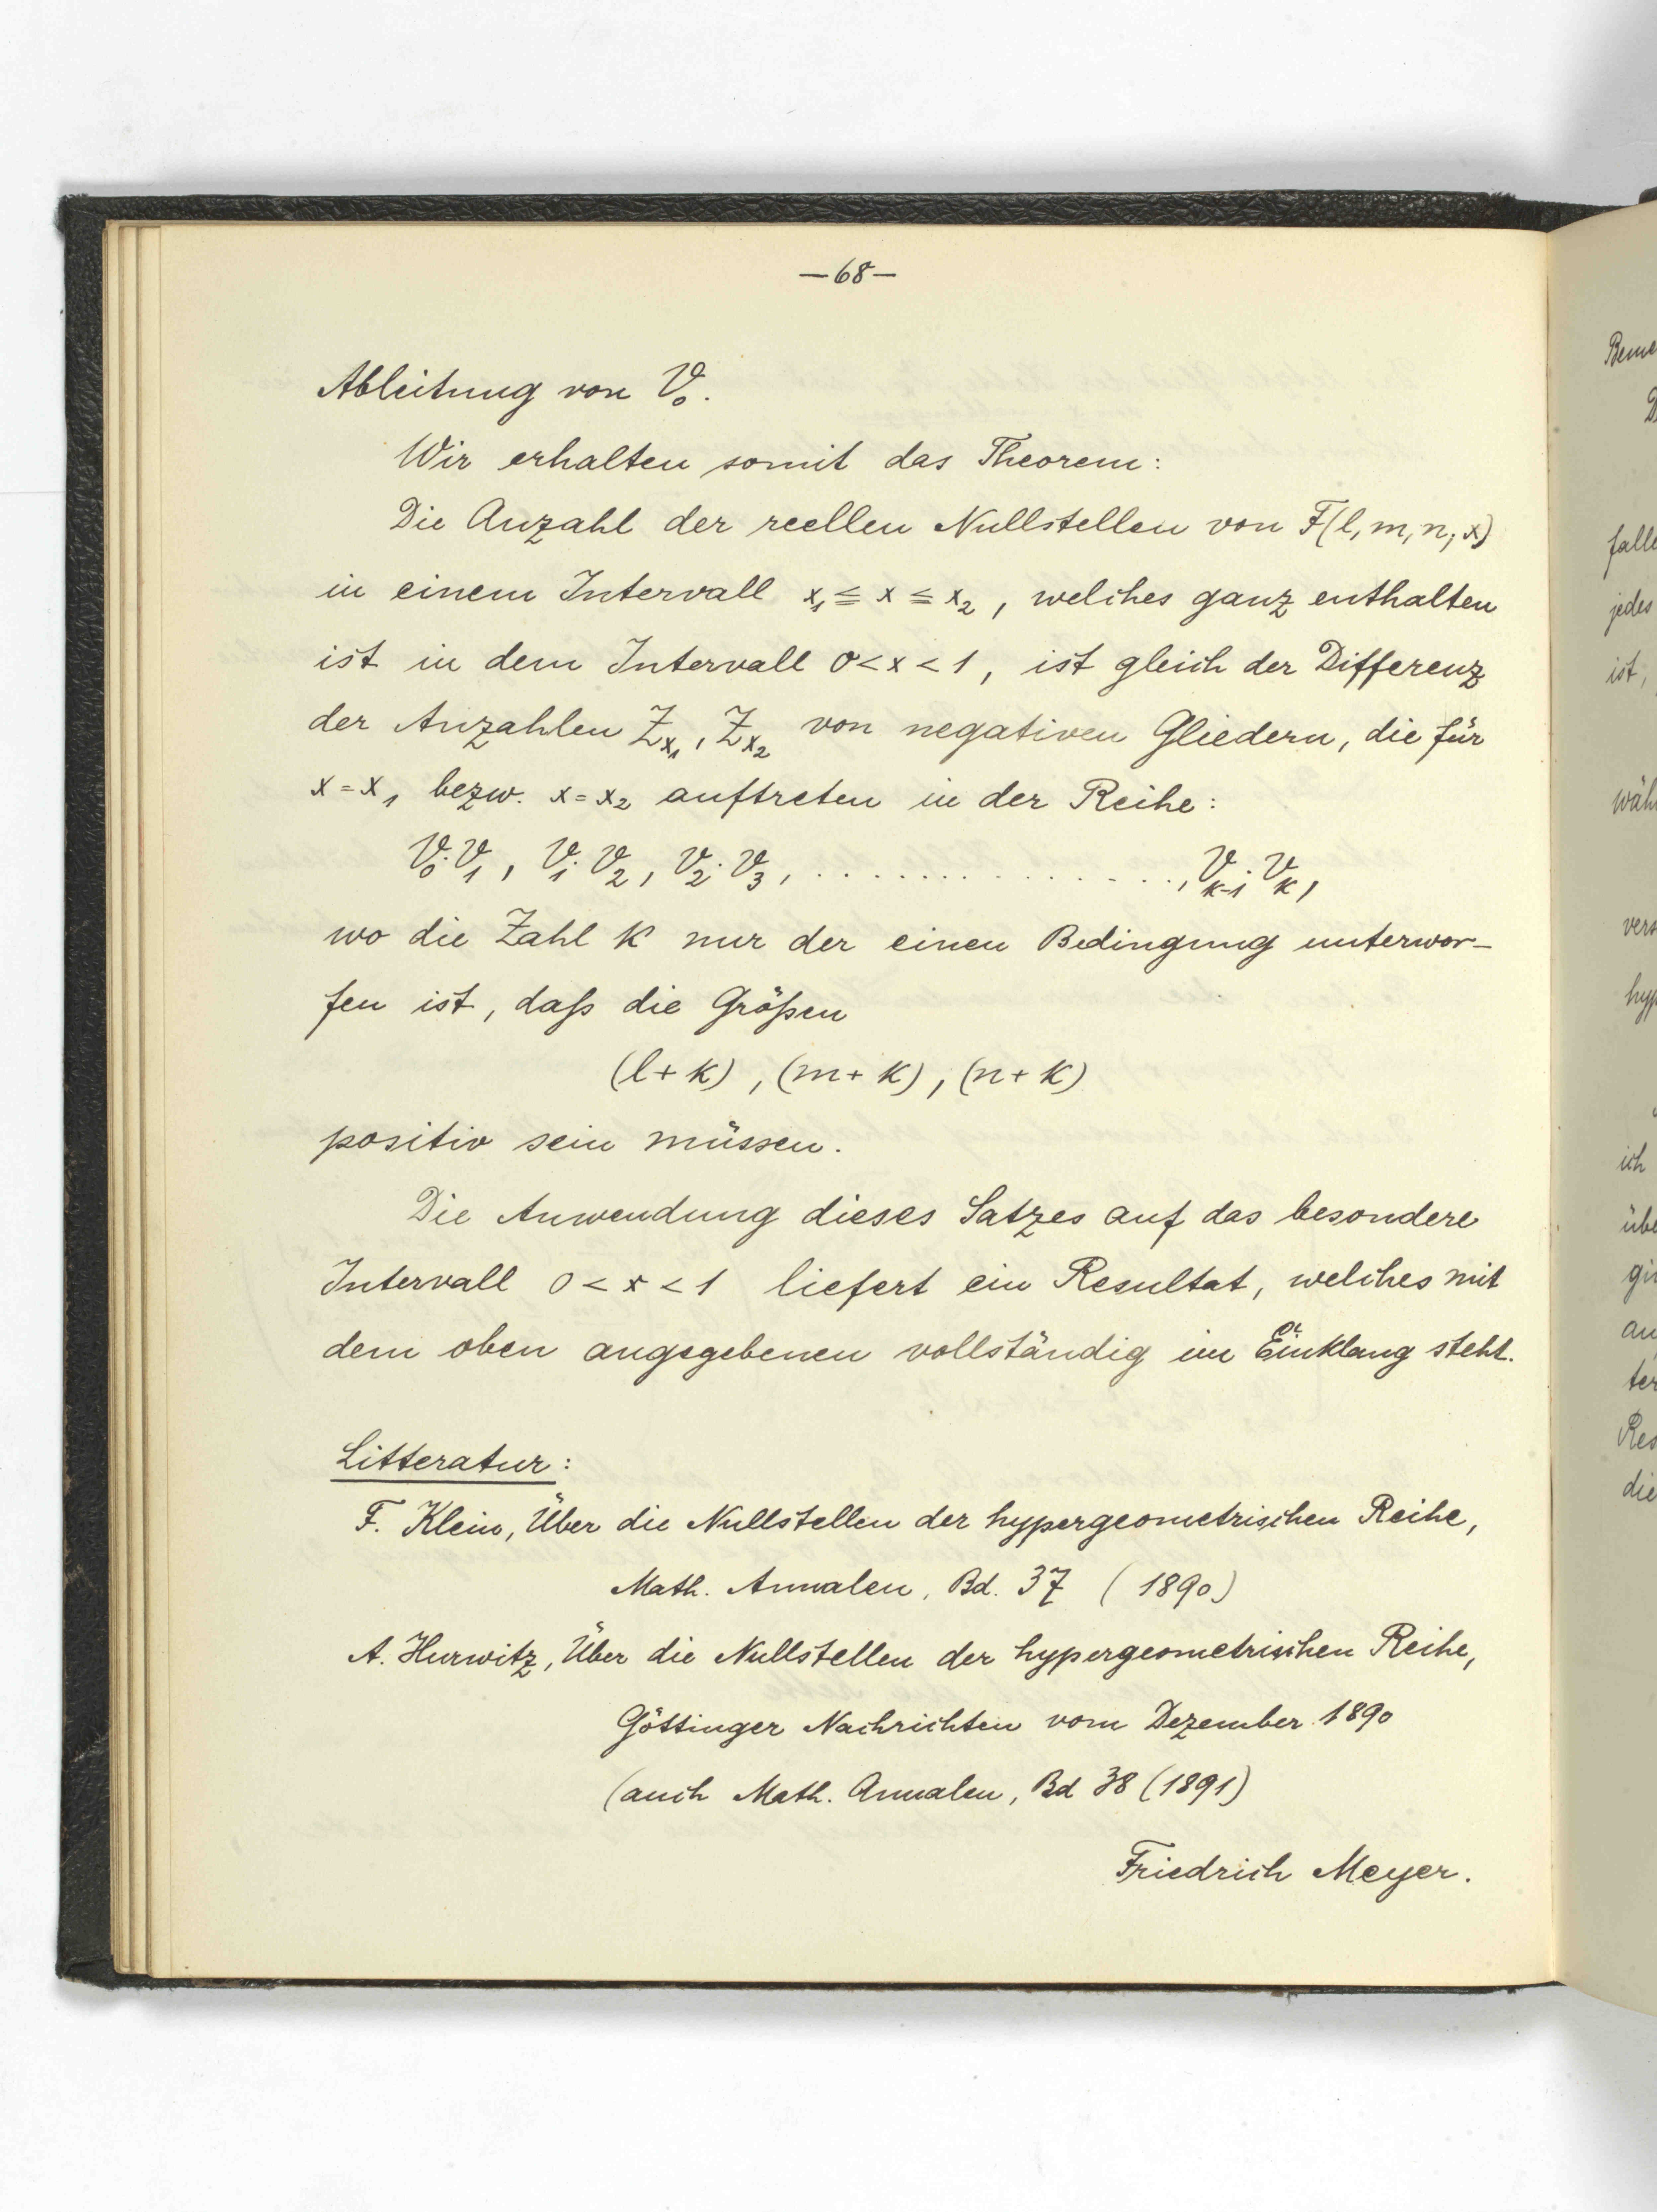 —68—
Ableitung von V₀.
Wir erhalten somit das Theorem:
Die Anzahl der reellen Nullstellen von F(l, m, n; x)
in einem Intervall x₁ ≦ x ≦ x₂, welches ganz enthalten
ist in dem Intervall 0 < x < 1, ist gleich der Differenz
der Anzahlen Z_{x₁}, Z_{x₂} von negativen Gliedern, die für
x = x₁ bezw. x = x₂ auftreten in der Reihe:
V₀·V₁, V₁·V₂, V₂·V₃, ................, V_{k-1}·V_k,
wo die Zahl k nur der einen Bedingung unterwor-
fen ist, daß die Größen
(l + k), (m + k), (n + k)
positiv sein müssen.
Die Anwendung dieses Satzes auf das besondere
Intervall 0 < x < 1 liefert ein Resultat, welches mit
dem oben angegebenen vollständig im Einklang steht.
Litteratur:
F. Klein, Über die Nullstellen der hypergeometrischen Reihe,
Math. Annalen, Bd. 37 (1890)
A. Hurwitz, Über die Nullstellen der hypergeometrischen Reihe,
Göttinger Nachrichten vom Dezember 1890
(auch Math. Annalen, Bd 38 (1891)
Friedrich Meyer.
falle
jedes
ist,
ich
die